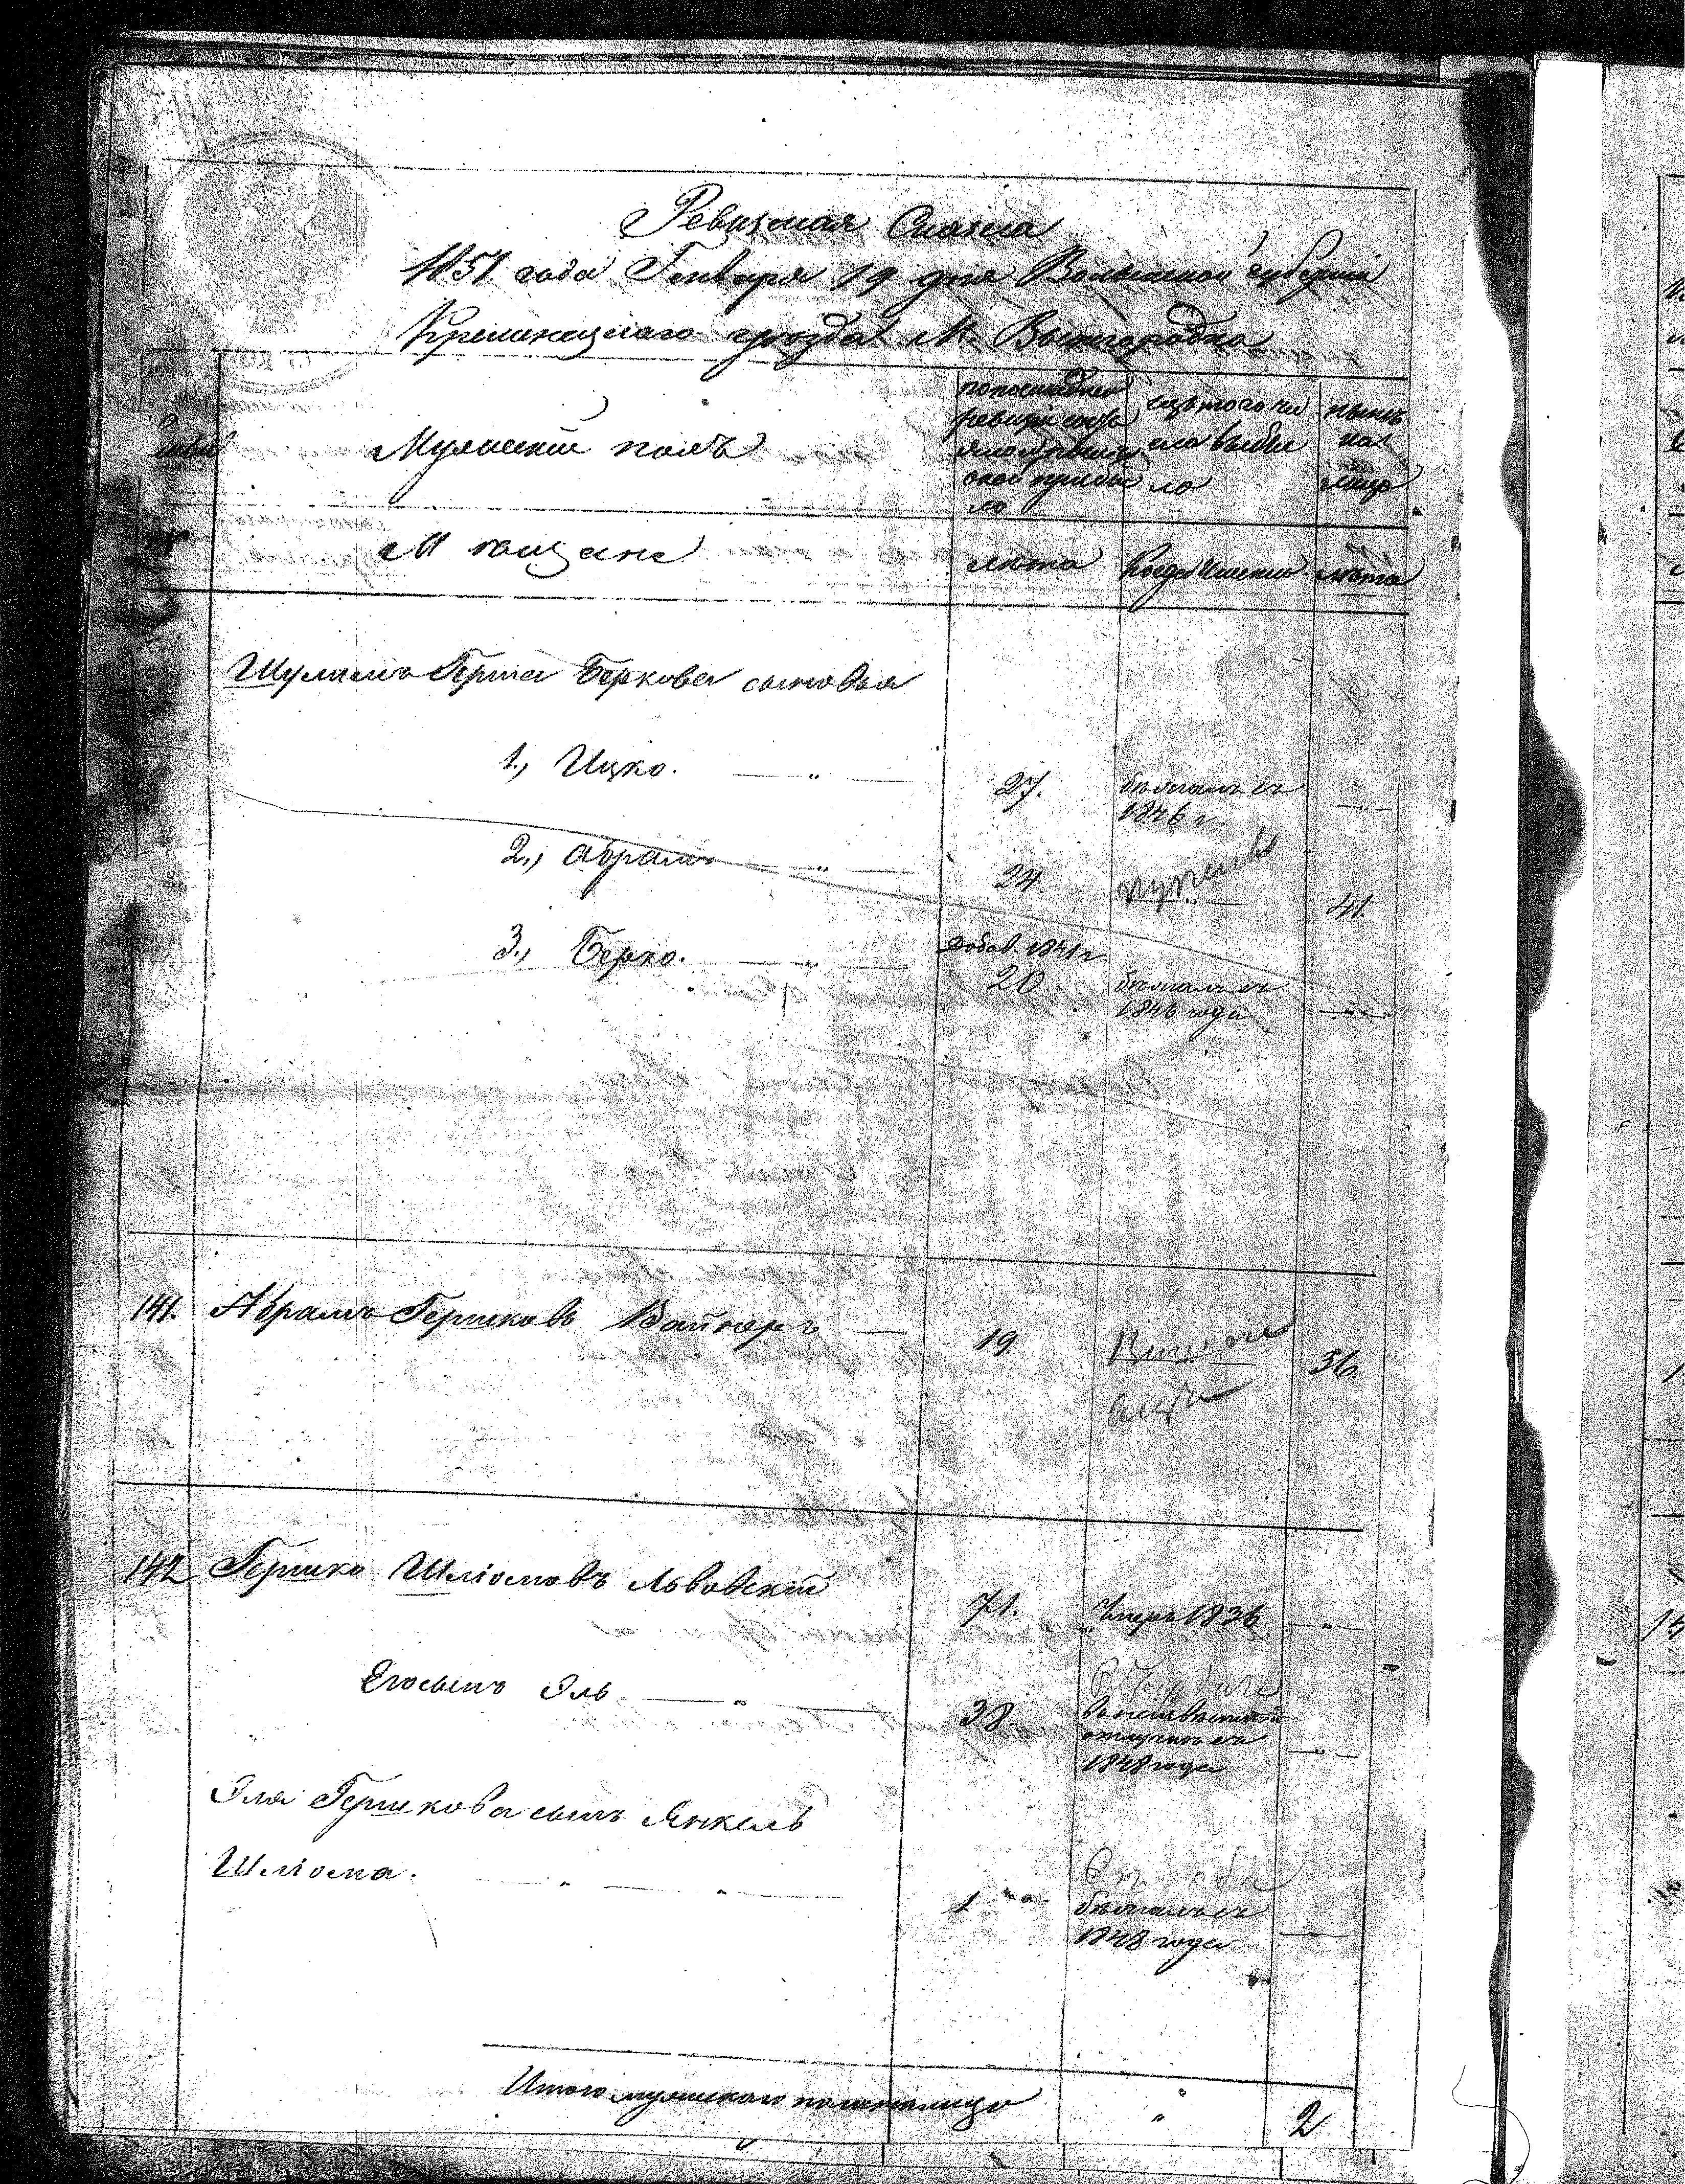 Ревизская Сказка
1851 года Генваря 19 дня Волынской губернии
Кременецкаго уезда М. Вышгородка
Мужеский полъ
по последней
ревизии состо
яло и после
оной прибы
ло
изъ того чи
сла выбы
ло
ныне
на
лицо
Мещане
лета
Когда именно
лета
Шулимъ Герша Беркова сыновья
1., Ицко. — „ —
27.
бежалъ съ
1846 г.
—„—
2., Абрамъ — „ —
24
41.
3., Берко. — „ —
добав. 1841 г.
20
бежалъ съ
1846 года
—„—
141. Абрамъ Гершковъ Вайнеръ —
19
36.
142 Гершко Шліомовъ Львовскій
71.
Умеръ 1836
—„—
Его сынъ Эль — „ —
38.
въ неизвестной
отлучке съ
1848 года
—„—
Эля Гершкова сынъ Янкель
Шліома. — „ — „ —
1
бежалъ съ
1848 года
—
Итого мужескаго пола налицо
„
2